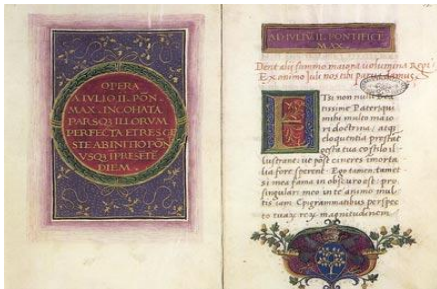 OPERA
A IVLIO II. PON̄.
MAX. INCOHATA
PARSQ. ILLORVM
PERFECTA ET RES GE
STE AB INITIO PON̄
VSQ. I PRESETE
DIEM.
AD IVLIV II. PONTIFICE
MAX.
Dent alii summo maiora volumina Regi
Ex animo Juli nos tibi parva damus.
Etsi non nulli Bea
tissime Pater: qui
mihi multo maio
ri doctrina, atq;
eloquentia prestāt
gesta tua eo stilo il
lustrant: ut post cineres immorta
lia fore sperent. Ego tamen, tamet
si mea fama in obscuro est: pro
singulari meo in te animo mul
tis iam Epigrammatibus perspe
cto tuaȩ rex magnitudinem